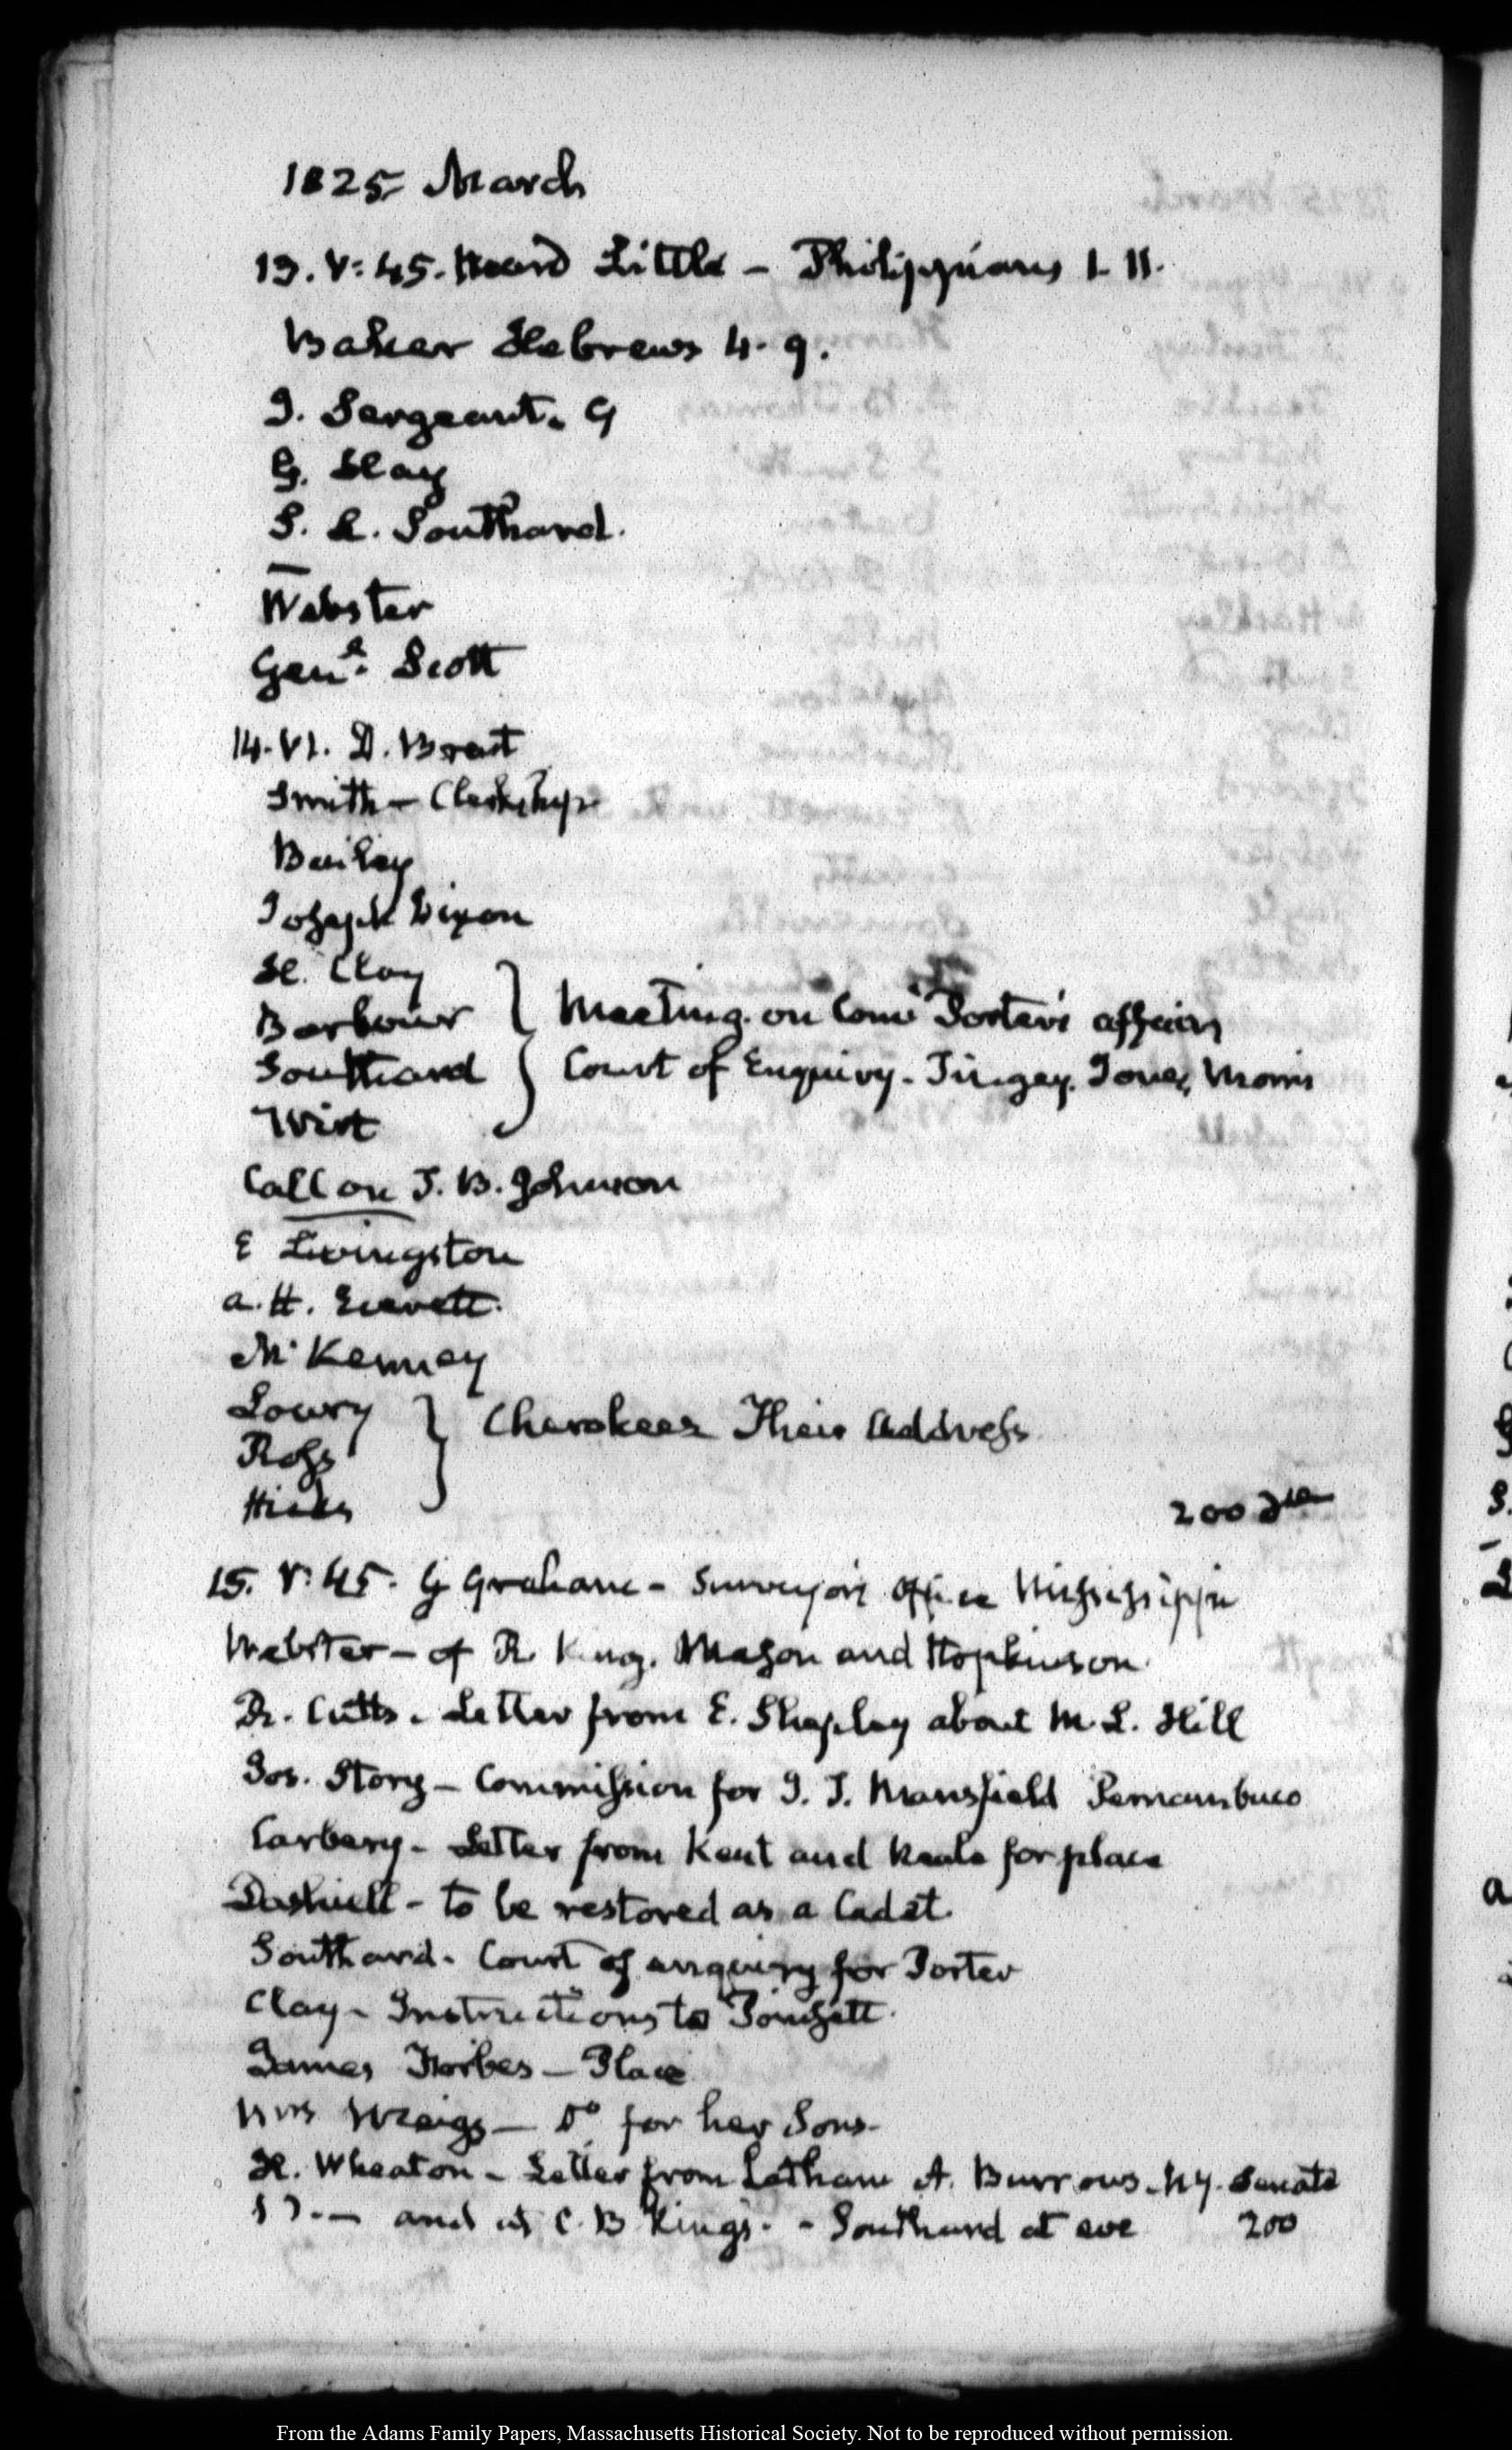 1825 March
13. V:45. Heard Little – Philippians 1. 11.
Baker Hebrews 4. 9.
J. Sergeant. 9
H. Clay
S. L. Southard.
Webster
Genl. Scott
14. VI. D. Brent
Smith – Clerkship
Bailey
Joseph Dixon
H. Clay
Barbour } Meeting on Comr. Porter's affairs
Southard } Court of Enquiry. Tingey. Jones, Morris
Wirt
Call on J. B. Johnson
E Livingston
A. H. Everett.
McKenney
Lowry
Ross } Cherokees Their Address
Hicks
200
15. V:45. G Graham – Surveyor's Office Mississippi
Webster – of R. King. Mason and Hopkinson.
R. Cutts. Letter from E. Shepley about M. L. Hill
Jos. Story – Commission for J. T. Mansfield Pernambuco
Carbery – Letter from Kent and Neale for place
Dashiell – to be restored as a Cadet.
Southard. Court of enquiry for Porter
Clay – Instructions to Poinsett.
James Forbes – Place
Mrs Meigs – Do. for her Sons.
H. Wheaton – Letter from Latham A. Burrows. N.Y. Senate
and at C. B. King's. – Southard at eve 200
From the Adams Family Papers, Massachusetts Historical Society. Not to be reproduced without permission.